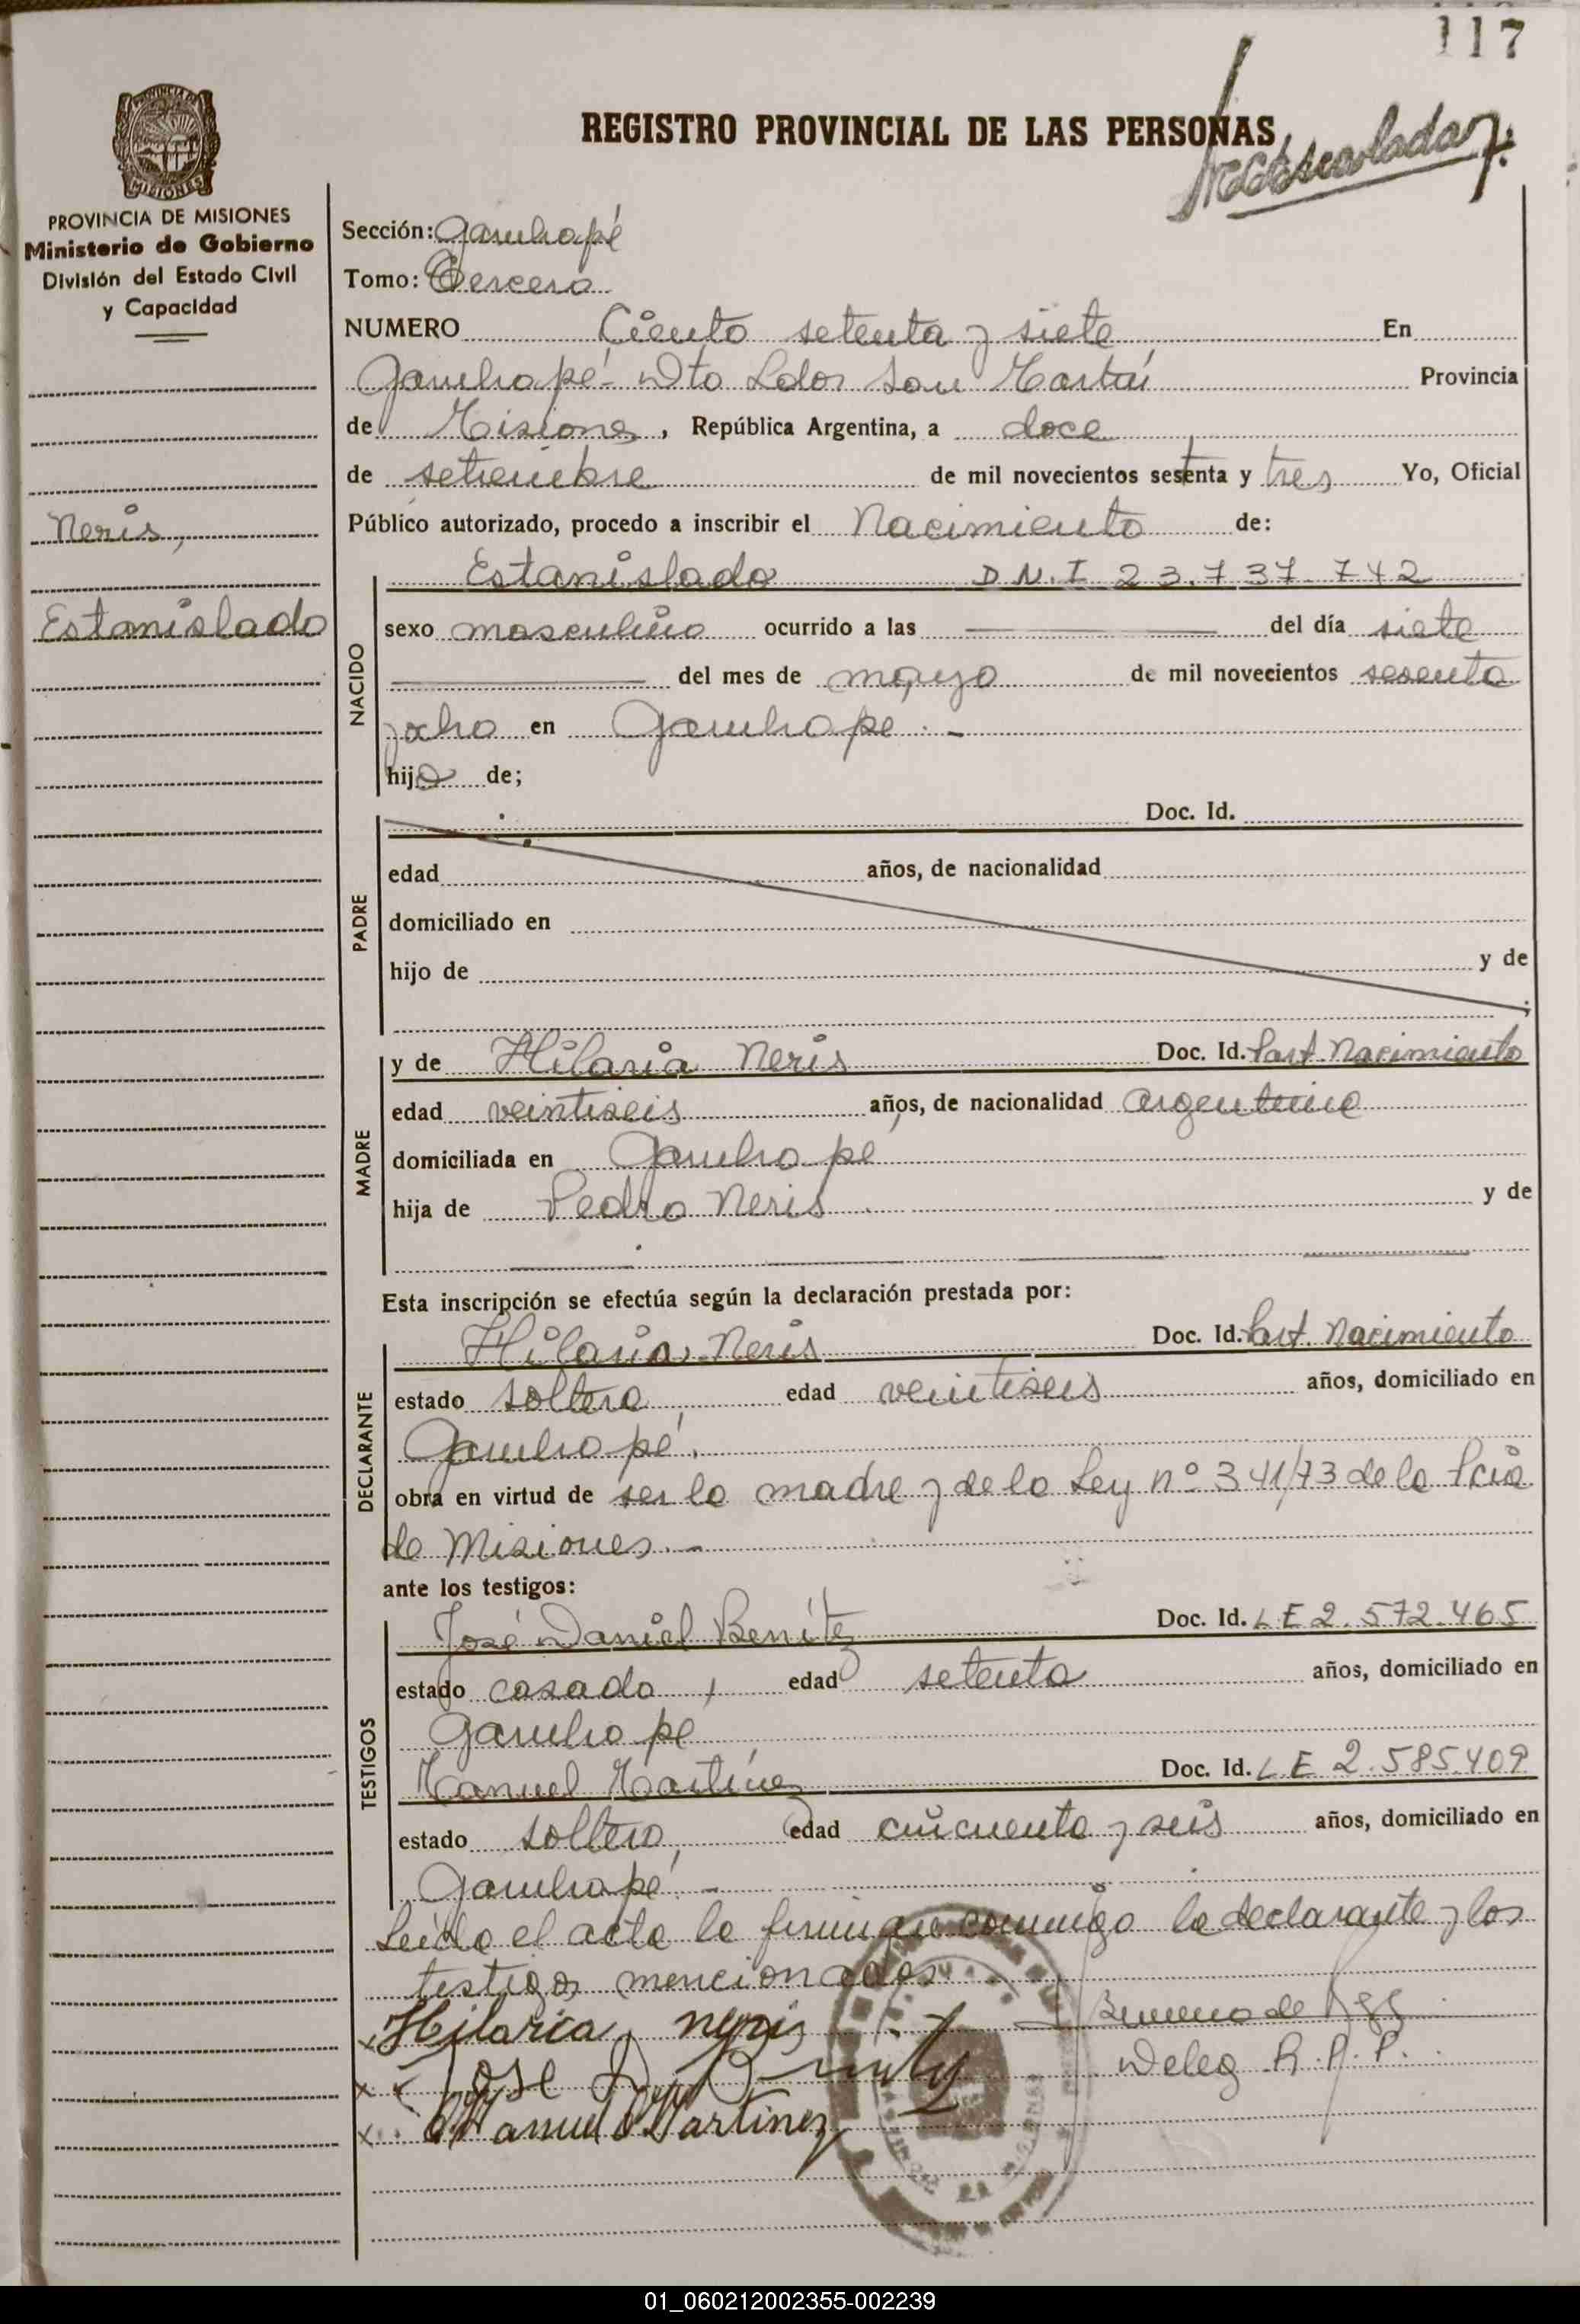 117
REGISTRO PROVINCIAL DE LAS PERSONAS
PROVINCIA DE MISIONES
Ministerio de Gobierno
División del Estado Civil
y Capacidad
Neris,
Estanislado
Sección: Garuhapé
Tomo: Tercero
NUMERO Ciento setenta y siete En
Garuhapé - Dto Ldor San Martín Provincia
de Misiones, República Argentina, a doce
de setiembre de mil novecientos setenta y tres Yo, Oficial
Público autorizado, procedo a inscribir el Nacimiento de:
NACIDO
Estanislado D.N.I 23.737.742
sexo masculino ocurrido a las del día siete
del mes de mayo de mil novecientos sesenta
y ocho en Garuhapé.-
hijo de;
PADRE
Doc. Id.
edad años, de nacionalidad
domiciliado en
hijo de y de
MADRE
y de Hilaria Neris Doc. Id. Part Nacimiento
edad veintiseis años, de nacionalidad argentina
domiciliada en Garuhapé
hija de Pedro Neris y de
Esta inscripción se efectúa según la declaración prestada por:
DECLARANTE
Hilaria Neris Doc. Id. Part Nacimiento
estado soltera, edad veintiseis años, domiciliado en
Garuhapé.
obra en virtud de ser la madre y de la Ley nº 341/73 de la Pcia
de Misiones.-
ante los testigos:
TESTIGOS
José Daniel Benítez Doc. Id. L E 2.572.465
estado casado, edad setenta años, domiciliado en
Garuhapé
Manuel Martínez Doc. Id. L E 2.585.409
estado soltero, edad cincuenta y seis años, domiciliado en
Garuhapé.-
Leída el acta la firman conmigo la declarante y los
testigos mencionados.
x Hilaria neris
x José D Benitez
Deleg R.P.P.
x Manuel Martinez
01_060212002355-002239